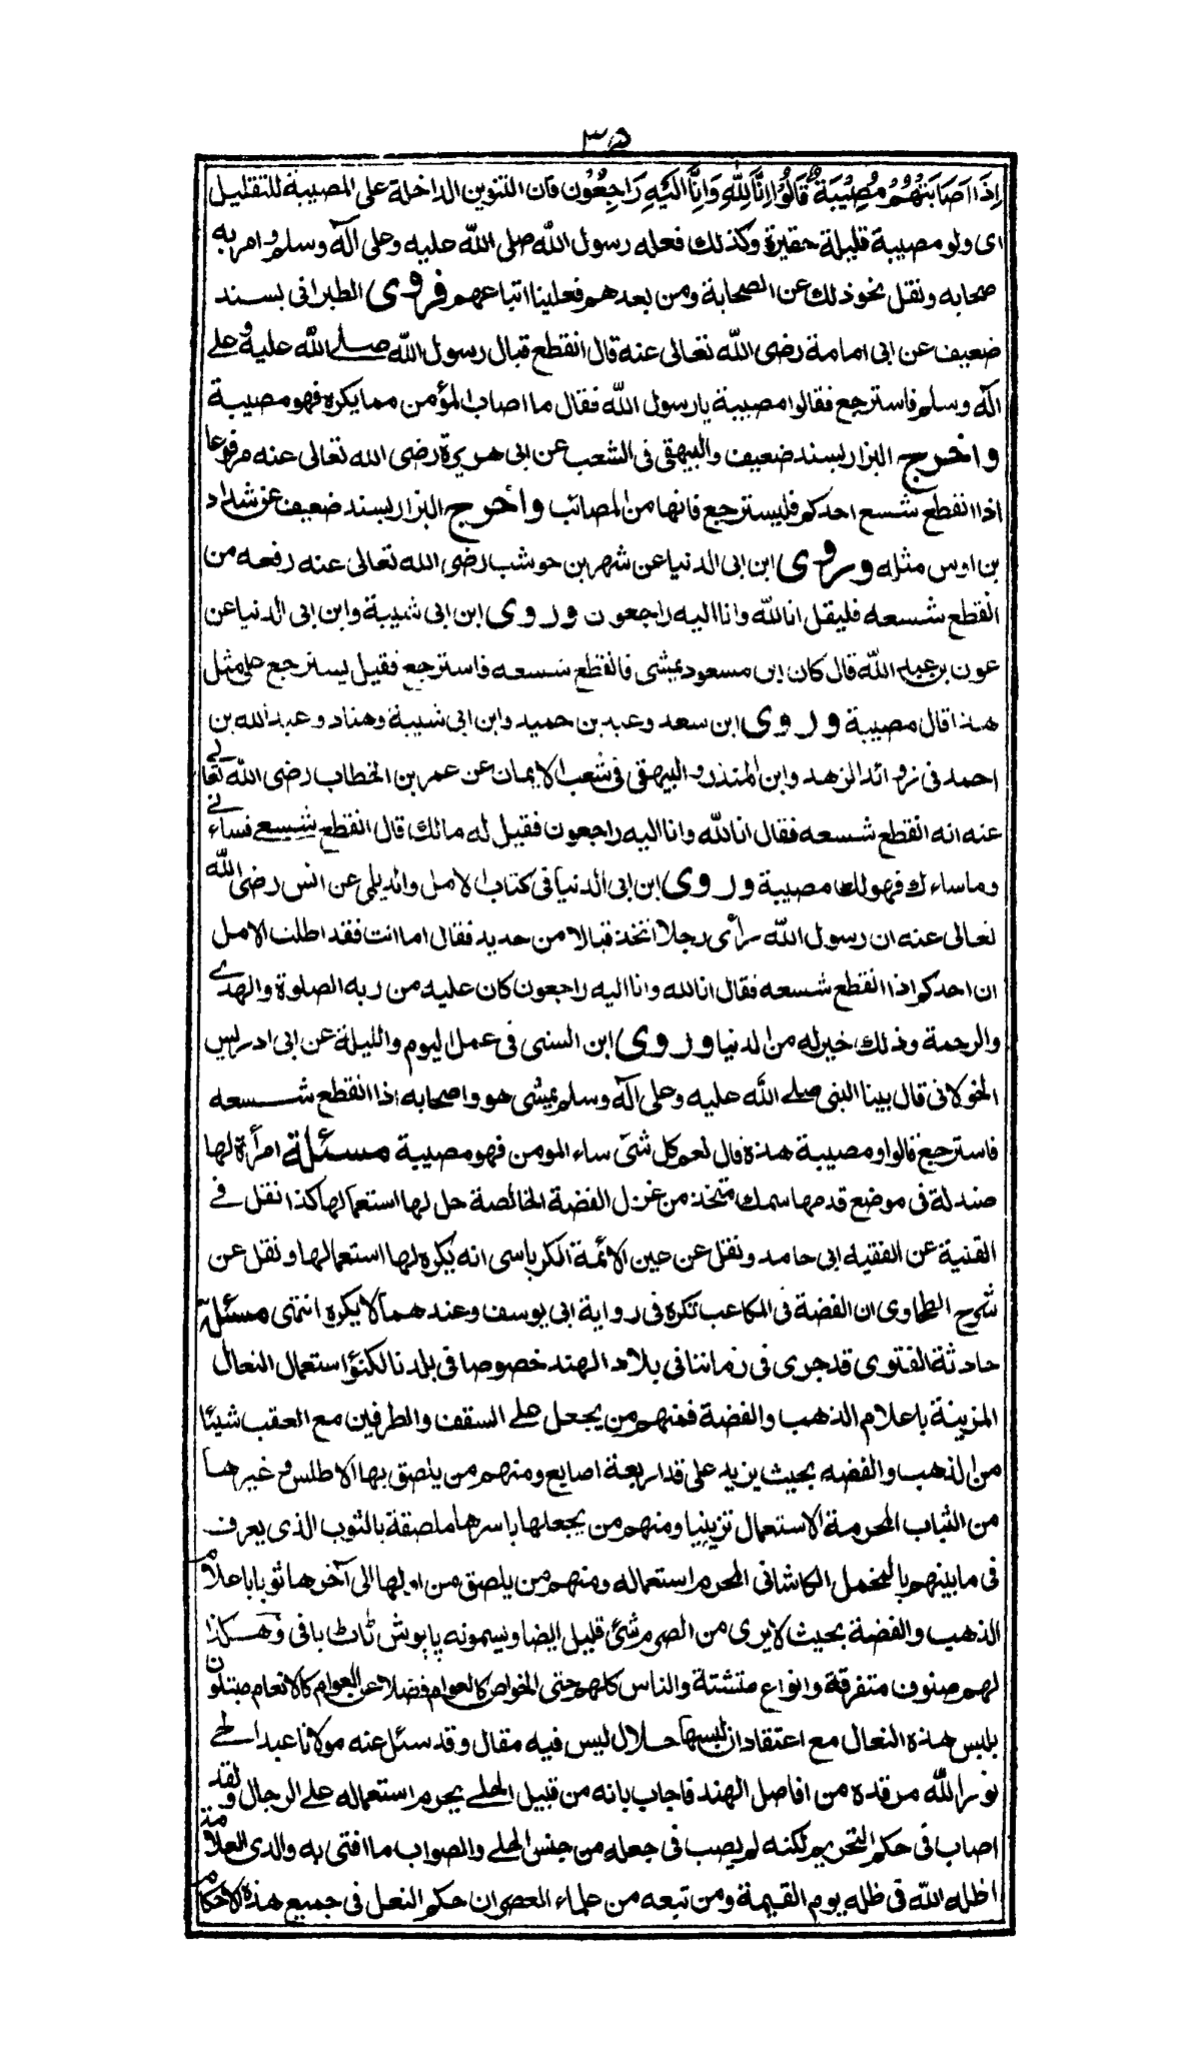 ٣٥
اِذَا اَصَابَتْهُمْ مُصِيْبَةٌ قَالُوْا اِنَّا لِلّٰهِ وَاِنَّا اِلَيْهِ رَاجِعُوْن فان التنوين الداخلة على المصيبة للتقليل
اى ولو مصيبة قليلة حقيرة وكذلك فعله رسول الله صلى الله عليه وعلى آله وسلم وامر به
صحابه ونقل نحو ذلك عن الصحابة ومن بعدهم فعلينا اتباعهم فروى الطبرانى بسند
ضعيف عن ابى امامة رضى الله تعالى عنه قال انقطع قبال رسول الله صلے الله عليه وعلے
آله وسلم فاسترجع فقالوا مصيبة يا رسول الله فقال ما اصاب المؤمن مما يكره فهو مصيبة
واخرج البزار بسند ضعيف والبيهقى فى الشعب عن ابى هريرة رضى الله تعالى عنه مرفوعا
اذا انقطع شسع احدكم فليسترجع فانها من المصائب واخرج البزار بسند ضعيف عن شداد
بن اوس مثله وروى ابن ابى الدنيا عن شهر بن حوشب رضى الله تعالى عنه رفعه من
انقطع شسعه فليقل انا لله وانا اليه راجعون وروى ابن ابى شيبة وابن ابى الدنيا عن
عون بن عبد الله قال كان ابن مسعود يمشى فانقطع شسعه فاسترجع فقيل يسترجع على مثل
هذا قال مصيبة وروى ابن سعد وعبد بن حميد وابن ابى شيبة وهناد وعبد الله بن
احمد فى زوائد الزهد وابن المنذر والبيهقى فى شعب الايمان عن عمر بن الخطاب رضى الله تعالے
عنه انه انقطع شسعه فقال انا لله وانا اليه راجعون فقيل له مالك قال انقطع شسعے فساءنے
وما ساءك فهو لك مصيبة وروى ابن ابى الدنيا فى كتاب الامل والديلمى عن انس رضى الله
تعالى عنه ان رسول الله رأى رجلا اتخذ قبالا من حديد فقال اما انت فقد اطلت الامل
ان احدكم اذا انقطع شسعه فقال انا لله وانا اليه راجعون كان عليه من ربه الصلوة والهدے
والرحمة وذلك خير له من الدنيا وروى ابن السنى فى عمل اليوم والليلة عن ابى ادريس
الخولانى قال بينا النبى صلے الله عليه وعلى آله وسلم يمشى هو واصحابه اذا انقطع شسعه
فاسترجع قالوا ومصيبة هذه قال نعم كل شئ ساء المومن فهو مصيبة مسئلة امرأة لها
صندلة فى موضع قدمها سمك متخذ من غزل الفضة الخالصة حل لها استعمالها كذا نقل فے
القنية عن الفقيه ابى حامد ونقل عن عين الائمة الكرباسى انه يكره لها استعمالها ونقل عن
شرح الطحاوى ان الفضة فى المكاعب تكره فى رواية ابى يوسف وعندهما لا يكره انتهى مسئلة
حادثة الفتوى قد جرى فى زماننا فى بلاد الهند خصوصا فى بلدنا لكنؤ استعمال النعال
المزينة باعلام الذهب والفضة فمنهم من يجعل علے السقف والطرفين مع العقب شيئا
من الذهب والفضه بحيث يزيد على قدر اربعة اصابع ومنهم من يلصق بها الاطلس وغيرها
من الثياب المحرمة الاستعمال تزيينيا ومنهم من يجعلها باسرها ملصقة بالثوب الذى يعرف
فى ما بينهم بالمخمل الكاشانى المحرم استعماله ومنهم من يلصق من اولها الى آخرها ثوبا باعلام
الذهب والفضة بحيث لا يرى من الصرم شئ قليل ايضا ويسمونه پاپوش ٹاٹ بافى وهكذا
لهم صنوف متفرقة وانواع متشتة والناس كلهم حتى الخواص كالعوام فضلا عن العوام كالانعام مبتلون
بلبس هذه النعال مع اعتقاد ان لبسها حلال ليس فيه مقال وقد سئل عنه مولانا
نور الله مرقده من افاضل الهند فاجاب بانه من قبيل الحلے يحرم استعماله علے الرجال ولقد
اصاب فى حكم التحريم لكنه لم يصب فى جعله من جنس الحلے والصواب ما افتى به والدى العلامة
اظله الله فى ظله يوم القيمة ومن تبعه من علماء العصر ان حكم النعل فى جميع هذه الاحكام